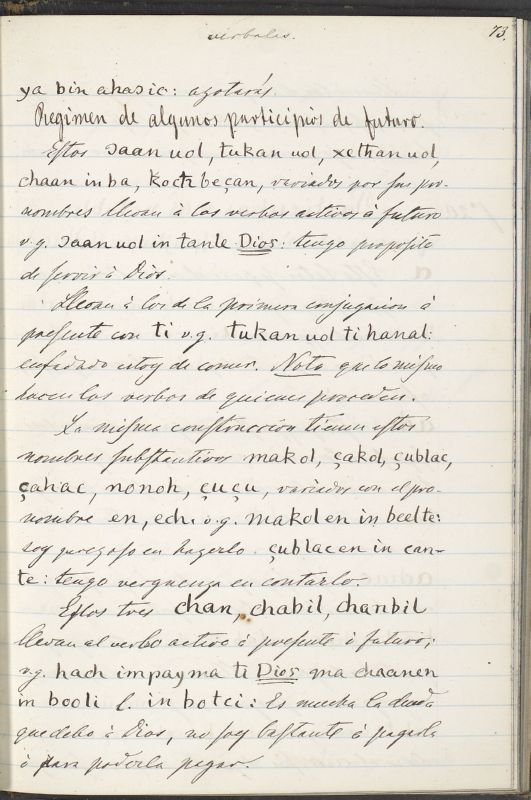 verbales.
73.
ya bin ahasic: azotarás.
Regimen de algunos participios de futuro.
Estos ɔaanuol, tukanuol, xethanuol,
chaan inba, kochbeçan, variados por sus pro-
nombres llevan à los verbos activos à futuro
v.g. ɔaanuol in tanle Dios: tengo proposito
de servir à Dios.
Llevan à los de la primera conjugacion à
presente con ti v.g. tukanuol ti hanal:
enfadado estoy de comer. Nota que lo mismo
hacen los verbos de quienes proceden.
La misma construccion tienen estos
nombres substantivos makol, çakol, çublac,
çahac, nonoh, çuçu, variados con el pro-
nombre en, ech. v.g. makolen in beelte:
soy perezoso en hazerlo. çublacen in can-
te: tengo verguenza en contarlo.
Estos tres chan, chabil, chanbil
llevan al verbo activo à presente ò futuro;
v.g. hach impayma ti Dios ma chaanen
in booli l. in botci: Es mucha la deuda
que debo à Dios, no soy bastante à pagarla
ò para poderla pagar.